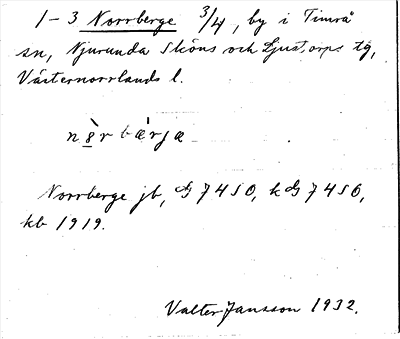 1-3 Norrberge 3/4, by i Timrå
sn, Njurunda Sköns och Ljust.orps tg,
Västernorrlands l.
nòr bæ̀rjæ
Norrberge jb, G 7450, k G 7450,
kb 1919.
Valter Jansson 1932.